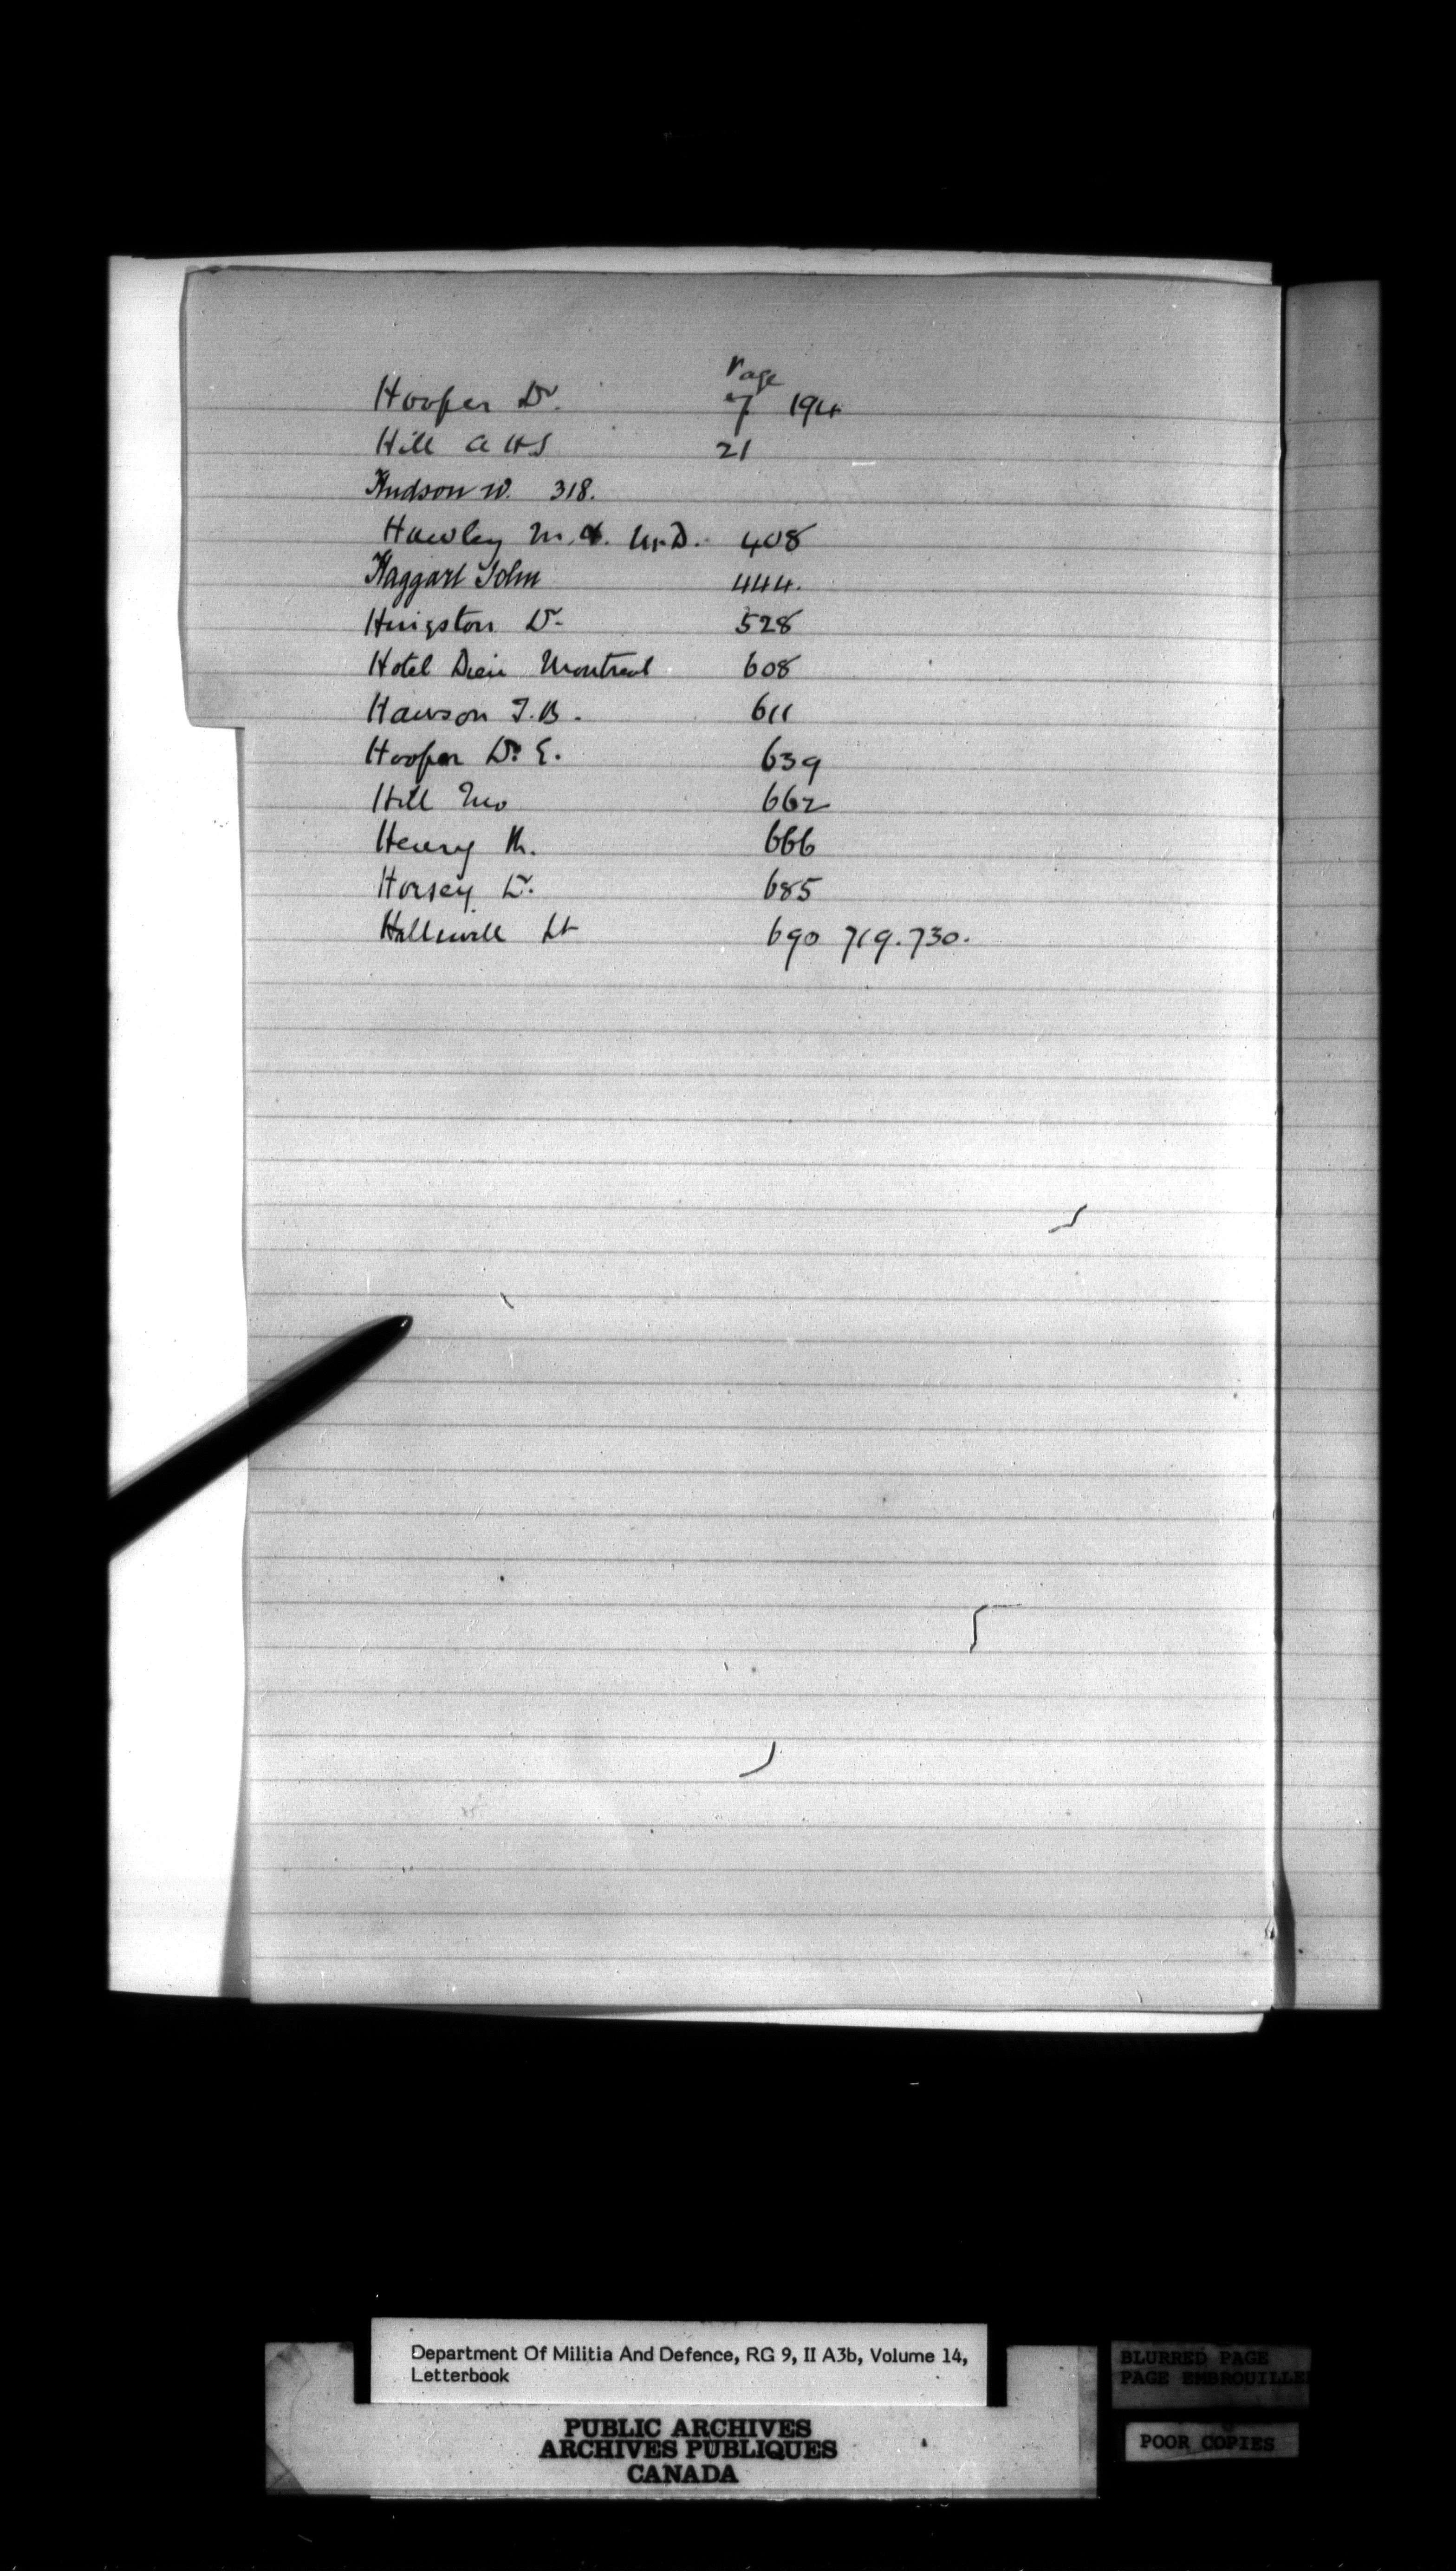 Page
Hooper Dr. 7 194
Hill A H S 21
Hudson W. 318.
Hawley M. M.D. 408
Haggart John 444.
Hingston Dr. 528
Hotel Dieu Montreal 608
Hawson T.B. 611
Hooper Dr. E. 639
Hill 662
Henry 666
Horsey Dr. 685
Halliwell Lt 690 719. 730.
Department Of Militia And Defence, RG 9, II A3b, Volume 14,
Letterbook
PUBLIC ARCHIVES
ARCHIVES PUBLIQUES
CANADA
BLURRED PAGE
PAGE EMBROUILLE
POOR COPIES